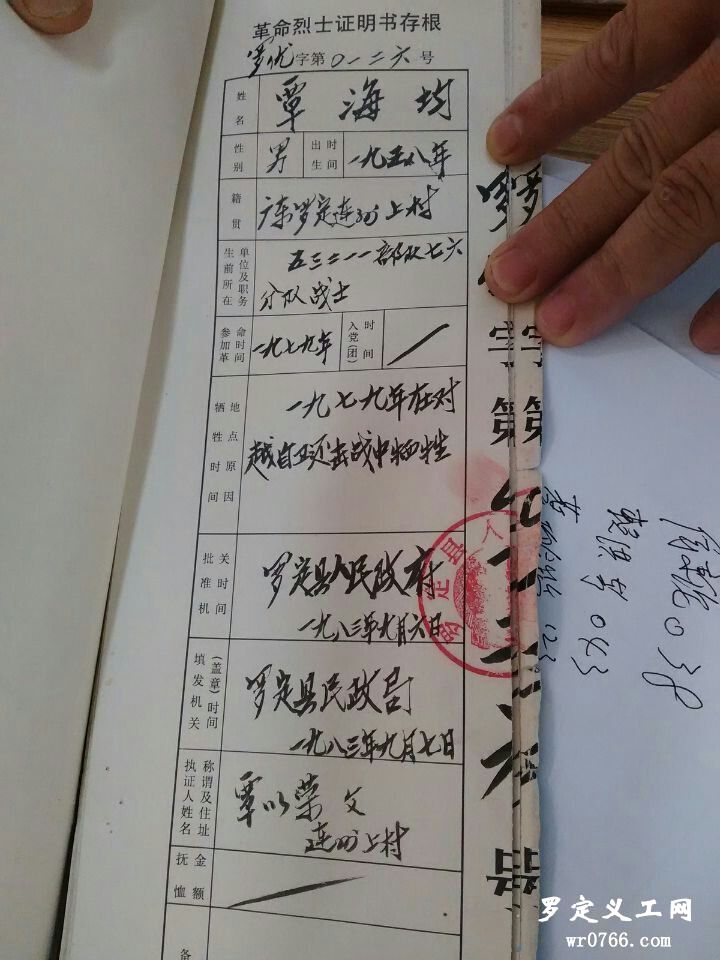 革命烈士证明书存根
罗优字第0一二六号
姓名 覃海均
性别 男 出生时间 一九五八年
籍贯 广东罗定连州上村
生前所在单位及职务 五三二一一部队七六
分队战士
参加革命时间 一九七九年 入党(团)时间
牺牲时间地点原因 一九七九年在对
越自卫还击战中牺牲
批准机关时间 罗定县人民政府
一九八三年九月六日
填发机关(盖章)时间 罗定县民政局
一九八三年九月七日
执证人姓名称谓及住址 覃以荣 父
连州上村
抚恤金额
备
罗
字第
定县人
罗定义工网
wr0766.com